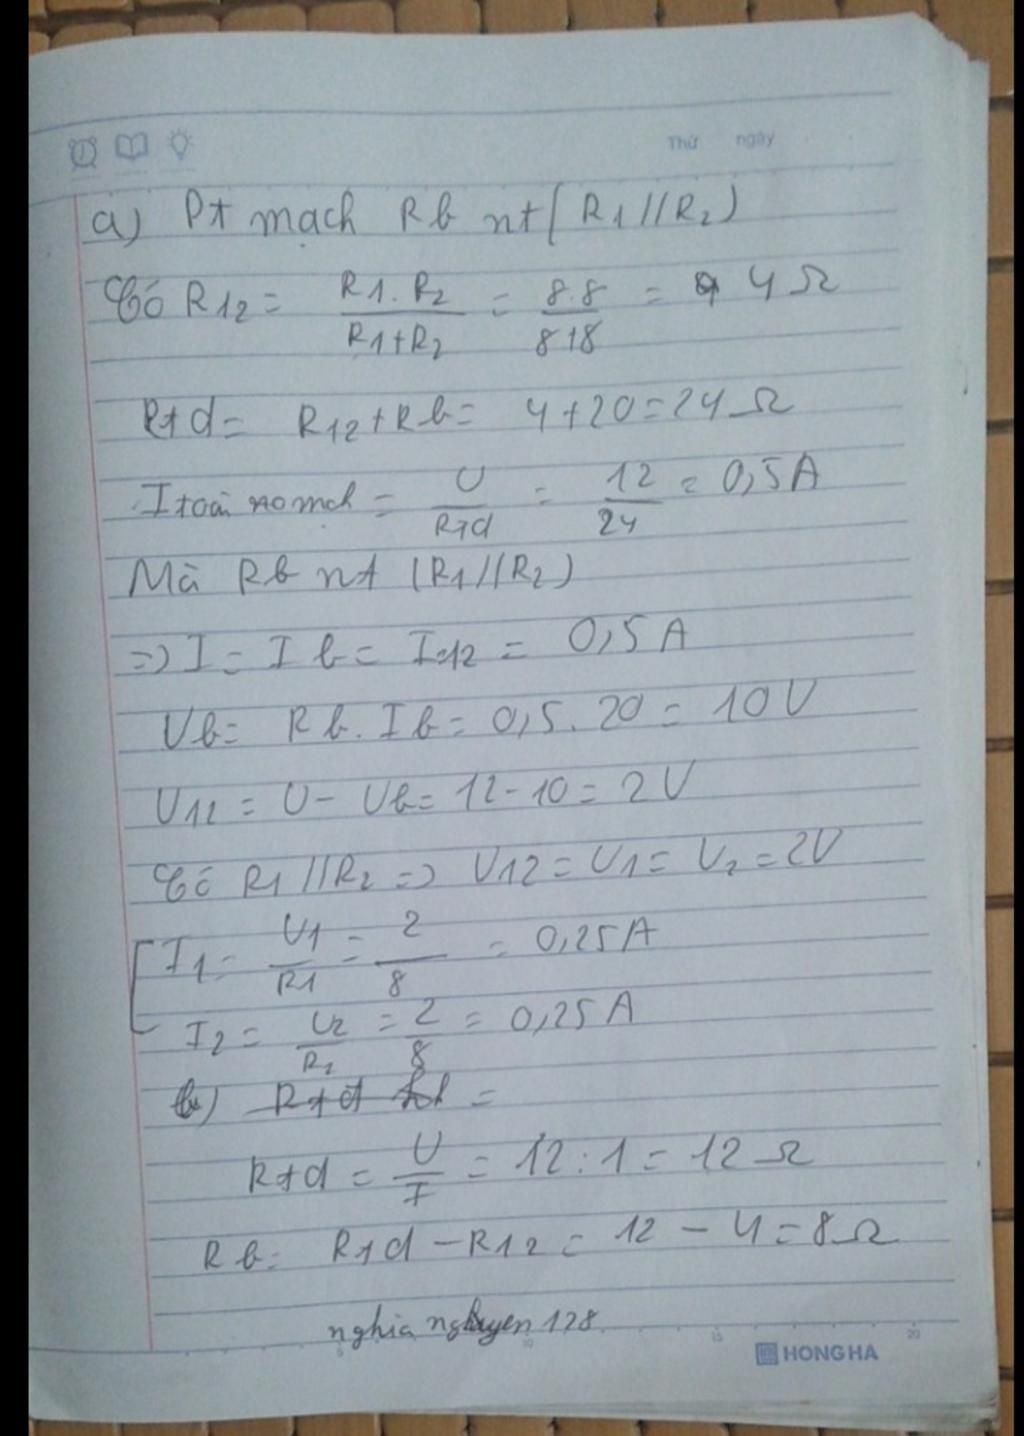 Thứ ngày
a) Pt mạch Rb nt (R1//R2)
Có R12 = R1.R2 / R1+R2 = 8.8 / 8+8 = 4Ω
Rtd = R12 + Rb = 4+20 = 24Ω
I toàn mạch = U / Rtd = 12 / 24 = 0,5A
Mà Rb nt (R1//R2)
=> I = Ib = I12 = 0,5A
Ub = Rb.Ib = 0,5.20 = 10V
U12 = U - Ub = 12-10 = 2V
Có R1//R2 => U12 = U1 = U2 = 2V
I1 = U1 / R1 = 2 / 8 = 0,25A
I2 = U2 / R2 = 2 / 8 = 0,25A
b) Rtd =
Rtd = U / I = 12 : 1 = 12Ω
Rb = Rtd - R12 = 12 - 4 = 8Ω
nghia nguyen 128
5 10 15 20
HONG HA